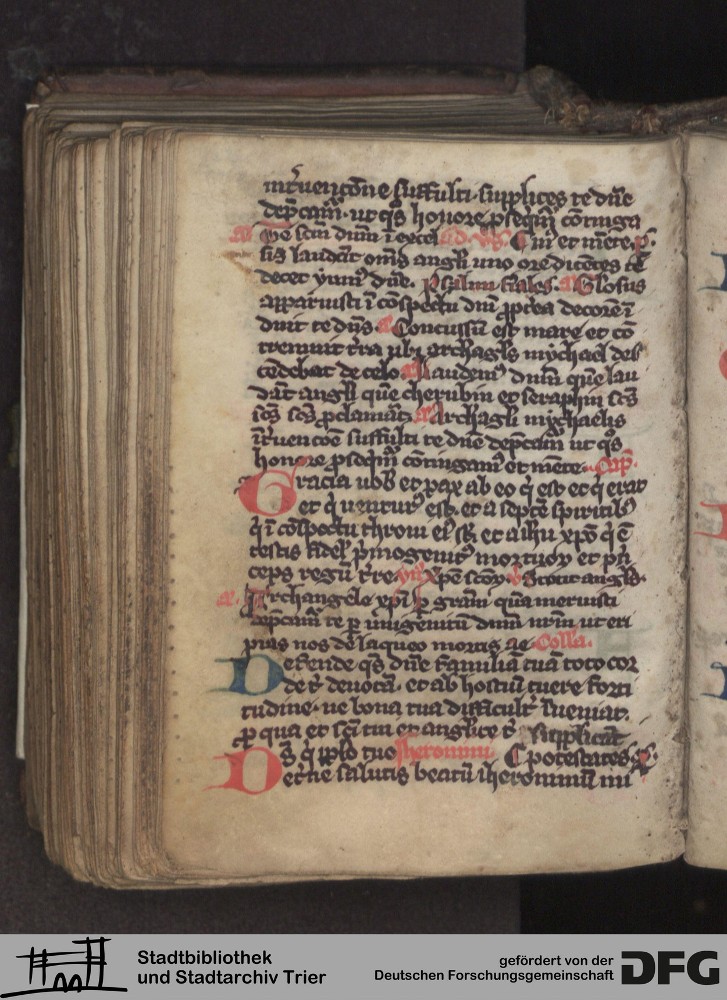 int̅uenc̅o̅ne suffulti supplices te dn̅e
dep̅cam̅ ut q̅s honore p̅seq̅m̅ co̅ninga
sc̅m dn̅m i̅ excel ad v̅s in et m̅ere
sis laudat om̅s angl̅i uno ore dice̅tes te
decet ymn̅ dn̅e. psalmi a Glosus
apparuisti i̅ co̅spectu dn̅i p̅p̅tea decore̅ i̅
duit te dn̅s a Concussu̅ est mare et co̅
tremuit t̅ra ubi archagl̅s mychael des
ce̅debat de celo a Laudem̅ dn̅m que̅ lau
da̅t angl̅i que̅ cherubin et seraphin sc̅s
sc̅s sc̅s p̅clamat a Archagl̅i mychaelis
i̅t̅uenc̅o̅e suffulti te dn̅e dep̅cam̅ ut q̅s
honore p̅seq̅m̅ co̅ningam̅ et m̅ere Cap̅
Gracia uob̅ et pax ab eo q̅ est et q̅ erat
et q̅ uentur̅ est et a septe̅ spiritib̅
q̅ i̅ co̅spectu throni ei̅ s̅t et a ih̅u xp̅o q̅ e̅
testis fidel̅ p̅mogenit̅ mortuor̅ et p̅n
ceps regu̅ t̅re xp̅e Stetit angl̅s
a Archangele xp̅i p̅ gram̅ qua̅ meruisti
dep̅cam̅ te p̅ unigenitu̅ dn̅m nr̅m ut eri
pias nos de laqueo mortis ae Coll̅a
Defende q̅s dn̅e familia̅ tua̅ toto cor
de t̅ deuota̅ et ab hostiu̅ tuere forti
tudine ne bona tua difficult̅ i̅ueniat
p̅ qua et sc̅i tui et anglice t̅ supplicat
Ds̅ q̅ p̅p̅lo tuo Iheronimi potestates
eterne salutis beatu̅ iheronimu̅ mi
Stadtbibliothek
und Stadtarchiv Trier
gefördert von der
Deutschen Forschungsgemeinschaft
DFG